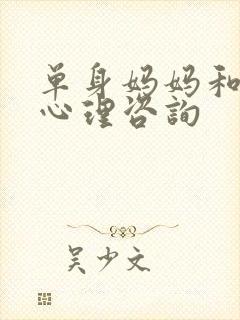 单身妈妈和
心理咨询
吴少文